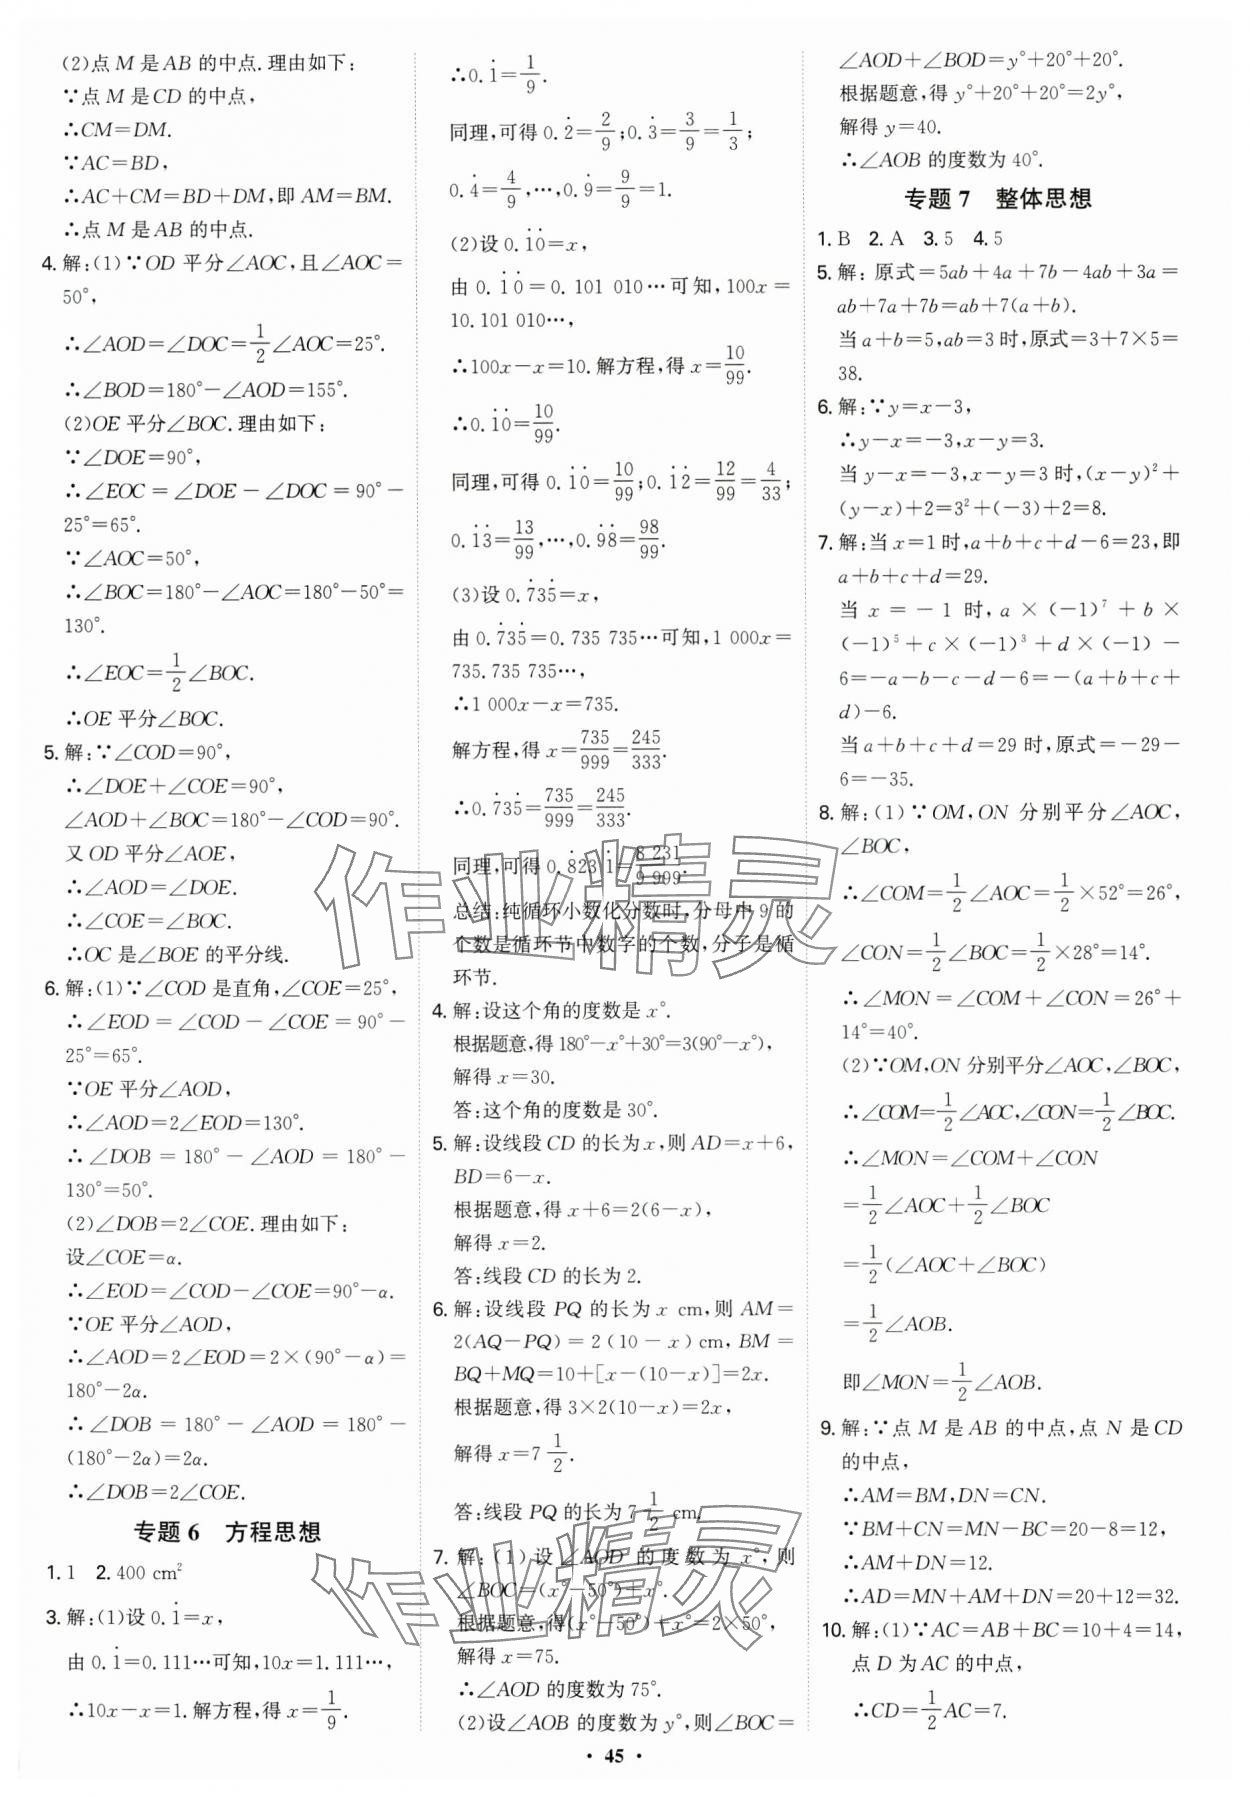 (2)点 M 是 AB 的中点.理由如下:
∵点 M 是 CD 的中点,
∴CM=DM.
∵AC=BD,
∴AC+CM=BD+DM,即 AM=BM.
∴点 M 是 AB 的中点.
4.解:(1)∵OD 平分∠AOC,且∠AOC=
50°,
∴∠AOD=∠DOC=1/2∠AOC=25°.
∴∠BOD=180°-∠AOD=155°.
(2)OE 平分∠BOC.理由如下:
∵∠DOE=90°,
∴∠EOC=∠DOE-∠DOC=90°-
25°=65°.
∵∠AOC=50°,
∴∠BOC=180°-∠AOC=180°-50°=
130°.
∴∠EOC=1/2∠BOC.
∴OE 平分∠BOC.
5.解:∵∠COD=90°,
∴∠DOE+∠COE=90°,
∠AOD+∠BOC=180°-∠COD=90°.
又 OD 平分∠AOE,
∴∠AOD=∠DOE.
∴∠COE=∠BOC.
∴OC 是∠BOE 的平分线.
6.解:(1)∵∠COD 是直角,∠COE=25°,
∴∠EOD=∠COD-∠COE=90°-
25°=65°.
∵OE 平分∠AOD,
∴∠AOD=2∠EOD=130°.
∴∠DOB=180°-∠AOD=180°-
130°=50°.
(2)∠DOB=2∠COE.理由如下:
设∠COE=α.
∴∠EOD=∠COD-∠COE=90°-α.
∵OE 平分∠AOD,
∴∠AOD=2∠EOD=2×(90°-α)=
180°-2α.
∴∠DOB=180°-∠AOD=180°-
(180°-2α)=2α.
∴∠DOB=2∠COE.
专题 6 方程思想
1.1 2.400 cm²
3.解:(1)设 0.1̇=x,
由 0.1̇=0.111…可知,10x=1.111…,
∴10x-x=1.解方程,得 x=1/9.
∴0.1̇=1/9.
同理,可得 0.2̇=2/9;0.3̇=3/9=1/3;
0.4̇=4/9,…,0.9̇=9/9=1.
(2)设 0.1̇0̇=x,
由 0.1̇0̇=0.101 010…可知,100x=
10.101 010…,
∴100x-x=10.解方程,得 x=10/99.
∴0.1̇0̇=10/99.
同理,可得 0.1̇0̇=10/99;0.1̇2̇=12/99=4/33;
0.1̇3̇=13/99,…,0.9̇8̇=98/99.
(3)设 0.7̇35̇=x,
由 0.7̇35̇=0.735 735…可知,1 000x=
735.735 735…,
∴1 000x-x=735.
解方程,得 x=735/999=245/333.
∴0.7̇35̇=735/999=245/333.
同理,可得 0.8̇231̇=8 231/9 999.
总结:纯循环小数化分数时,分母中 9 的
个数是循环节中数字的个数,分子是循
环节.
4.解:设这个角的度数是 x°.
根据题意,得 180°-x°+30°=3(90°-x°),
解得 x=30.
答:这个角的度数是 30°.
5.解:设线段 CD 的长为 x,则 AD=x+6,
BD=6-x.
根据题意,得 x+6=2(6-x),
解得 x=2.
答:线段 CD 的长为 2.
6.解:设线段 PQ 的长为 x cm,则 AM=
2(AQ-PQ)=2(10-x)cm,BM=
BQ+MQ=10+[x-(10-x)]=2x.
根据题意,得 3×2(10-x)=2x,
解得 x=7 1/2.
答:线段 PQ 的长为 7 1/2 cm.
7.解:(1)设∠AOD 的度数为 x°,则
∠BOC=(x°-50°)+x°.
根据题意,得(x°-50°)+x°=2×50°,
解得 x=75.
∴∠AOD 的度数为 75°.
(2)设∠AOB 的度数为 y°,则∠BOC=
∠AOD+∠BOD=y°+20°+20°.
根据题意,得 y°+20°+20°=2y°,
解得 y=40.
∴∠AOB 的度数为 40°.
专题 7 整体思想
1.B 2.A 3.5 4.5
5.解:原式=5ab+4a+7b-4ab+3a=
ab+7a+7b=ab+7(a+b).
当 a+b=5,ab=3 时,原式=3+7×5=
38.
6.解:∵y=x-3,
∴y-x=-3,x-y=3.
当 y-x=-3,x-y=3 时,(x-y)²+
(y-x)+2=3²+(-3)+2=8.
7.解:当 x=1 时,a+b+c+d-6=23,即
a+b+c+d=29.
当 x=-1 时,a×(-1)⁷+b×
(-1)⁵+c×(-1)³+d×(-1)-
6=-a-b-c-d-6=-(a+b+c+
d)-6.
当 a+b+c+d=29 时,原式=-29-
6=-35.
8.解:(1)∵OM,ON 分别平分∠AOC,
∠BOC,
∴∠COM=1/2∠AOC=1/2×52°=26°,
∠CON=1/2∠BOC=1/2×28°=14°.
∴∠MON=∠COM+∠CON=26°+
14°=40°.
(2)∵OM,ON 分别平分∠AOC,∠BOC,
∴∠COM=1/2∠AOC,∠CON=1/2∠BOC.
∴∠MON=∠COM+∠CON
=1/2∠AOC+1/2∠BOC
=1/2(∠AOC+∠BOC)
=1/2∠AOB.
即∠MON=1/2∠AOB.
9.解:∵点 M 是 AB 的中点,点 N 是 CD
的中点,
∴AM=BM,DN=CN.
∵BM+CN=MN-BC=20-8=12,
∴AM+DN=12.
∴AD=MN+AM+DN=20+12=32.
10.解:(1)∵AC=AB+BC=10+4=14,
点 D 为 AC 的中点,
∴CD=1/2AC=7.
作业精灵
作业精灵
· 45 ·